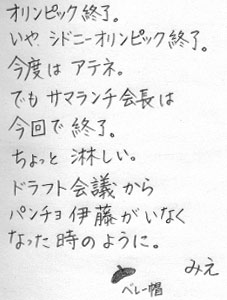 オリンピック終了。
いや、シドニーオリンピック終了。
今度は アテネ。
でも サマランチ会長は
今回で 終了。
ちょっと 淋しい。
ドラフト会議から
パンチョ伊藤がいなく
なった 時のように。
みえ
ベレー帽